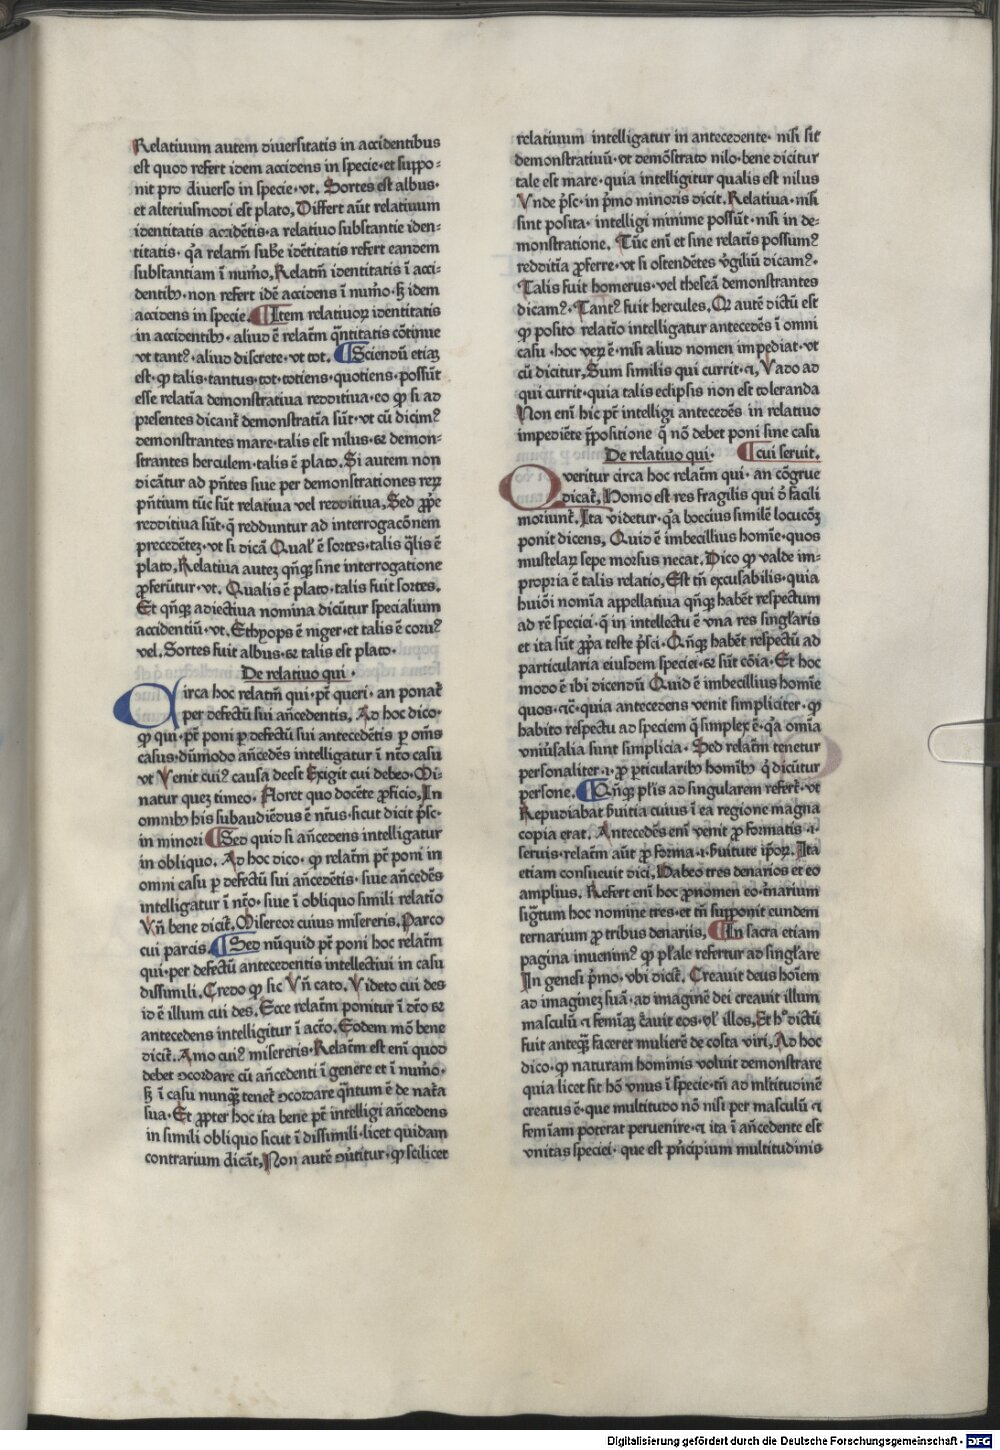 Relatiuum autem diuersitatis in accidentibus
est quod refert idem accidens in specie·et suppo⸗
nit pro diuerso in specie·vt. Sortes est albus·
et alteriusmodi est plato, Differt aūt relatiuum
identitatis accidētis·a relatiuo substantie iden⸗
titatis· qͣ relatm̄ subē idētitatis refert eandem
substantiam ī nūo, Relatm̄ identitatis ī acci⸗
dentibꝫ·non refert idē accidens ī nūo·ꝫ idem
accidens in specie. ¶Item relatiuoꝝ identitatis
in accidentibꝫ· aliud ē relatm̄ qn̄titatis cōtinue
vt tantꝰ·aliud discrete·vt tot. ¶Sciendū etiaꝫ
est·ꝙ talis·tantus·tot·totiens·quotiens·possūt
esse relatīa demonstratiua redditiua·eo ꝙ si ad
presentes dicant̄ demonstratīa sūt·vt cū dicimꝰ
demonstrantes mare·talis est nilus·⁊ demon⸗
strantes herculem·talis ē plato. Si autem non
dicātur ad pn̄tes siue per demonstrationes reꝝ
pn̄tium tūc sūt relatiua vel redditiua, Sed ꝓpe
redditiua sūt·q̄ redduntur ad interrogacōnem
precedētez·vt si dicā Qual' ē sortes·talis q̄lis ē
plato, Relatiua autez qn̄qꝫ sine interrogatione
ꝓferūtur·vt. Qualis ē plato·talis fuit sortes.
Et qn̄qꝫ adiectiua nomina dicūtur specialium
accidentiū·vt. Ethyops ē niger·et talis ē coruꝰ
vel. Sortes fuit albus·⁊ talis est plato·
De relatiuo qui ·
Circa hoc relatm̄ qui·pt̄ queri· an ponat̄
per defectū sui an̄cedentis, Ad hoc dico·
ꝙ qui·pt̄ poni ꝑ defectū sui antecedētis ꝑ om̄s
casus·dūmodo an̄cedēs intelligatur ī nt̄o casu
vt Venit cuiꝰ causa deest Exigit cui debeo·Mi⸗
natur quez timeo· Floret quo docēte ꝓficio, In
omnibꝫ his subaudiēdus ē nt̄us·sicut dicit pͥsc·
in minori ¶Sed quid si an̄cedens intelligatur
in obliquo. Ad hoc dico· ꝙ relatm̄ pt̄ poni in
omni casu ꝑ defectū sui an̄cedētis·siue an̄cedēs
intelligatur ī nt̄o·siue ī obliquo simili relatio
Vn̄ bene dicit̄. Misereor cuius misereris. Parco
cui parcis. ¶Sed nūquid pt̄ poni hoc relatm̄
qui·per defectū antecedentis intellectiui in casu
dissimili. Credo ꝙ sic Vn̄ cato. Videto cui des
id ē illum cui des. Ecce relatm̄ ponitur ī dt̄o ⁊
antecedens intelligitur ī act̄o. Eodem mō bene
dicit̄. Amo cuiꝰ misereris·Relatm̄ est enī quod
debet ꝯcordare cū an̄cedenti ī genere et ī nūo·
ꝫ ī casu nunqꝫ tenet̄ ꝯcordare qn̄tum ē de nat̄a
sua· Et ꝓpter hoc ita bene pt̄ intelligi an̄cedens
in simili obliquo sicut ī dissimili·licet quidam
contrarium dicāt, Non autē dūtitur·ꝙ scilicet
relatiuum intelligatur in antecedente· nisi sit
demonstratiuū·vt demōstrato nilo·bene dicitur
tale est mare·quia intelligitur qualis est nilus
Vnde pͥsc·in pͥmo minoris dicit. Relatiua·nisi
sint posita· intelligi minime possūt·nisi in de⸗
monstratione. Tūc enī et sine relatis possumꝰ
redditīa ꝓferre·vt si ostendētes v̄giliū dicamꝰ·
Talis fuit homerus·vel theseā demonstrantes
dicamꝰ·Tantꝰ fuit hercules, Qꝛ autē dictū est
ꝙ posito relatīo intelligatur antecedēs ī omni
casu·hoc veꝝ ē·nisi aliud nomen impediat·vt
cū dicitur, Sum similis qui currit·⁊, Vado ad
qui currit·quia talis eclipsis non est toleranda
Non enī hic pt̄ intelligi antecedēs in relatiuo
impediēte p̄positione q̄ nō debet poni sine casu
De relatiuo qui· ¶cui seruit.
Queritur circa hoc relatm̄ qui· an cōgrue
dicat̄, Homo est res fragilis qui d̄ facili
moriunt̄. Ita videtur·qͣ boecius similē locucōꝫ
ponit dicens, Quid ē imbecillius homīe·quos
mustelaꝝ sepe morsus necat. Dico ꝙ valde im⸗
propria ē talis relatio, Est tn̄ excusabilis·quia
huiōi nomīa appellatiua qn̄qꝫ habēt respectum
ad rē speciei·q̄ in intellectu ē vna res singl'aris
et ita sūt ꝓpͣa teste pͥsci·Qn̄qꝫ habēt respectū ad
particularia eiusdem speciei·⁊ sūt cōia·Et hoc
modo ē ibi dicendū Quid ē imbecillius homīe
quos·⁊c̄·quia antecedens venit simpliciter·ꝙ
habito respectu ad speciem q̄ simplex ē·qͣ omīa
vniūsalia sunt simplicia· Sed relatm̄ tenetur
personaliter·i·ꝓ ꝑticularibꝫ homībꝫ q̄ dicūtur
persone. ¶Qn̄qꝫ pl'is ad singularem refert̄·vt
Repudiabat ḃuitia cuius ī ea regione magna
copia erat. Antecedēs enī venit ꝓ formatis·i·
seruis·relatm̄ aūt ꝓ forma·i·ḃuitute ip̄oꝝ. Ita
etiam consueuit dici, Habeo tres denarios et eo
amplius. Refert enī hoc ꝓnomen eo·t̄narium
sigtum hoc nomine tres·et tn̄ supponit eundem
ternarium ꝓ tribus denariis, ¶In sacra etiam
pagina inuenimꝰ ꝙ pl'ale refertur ad singl'are
In genesi pͥmo·vbi dicit̄. Creauit deus hoīem
ad imaginez suā·ad imaginē dei creauit illum
masculū ⁊ femīaꝫ c̄auit eos·vl' illos, Et hͦ dictū
fuit anteqꝫ faceret mulierē de costa viri, Ad hoc
dico·ꝙ naturam hominis voluit demonstrare
quia licet sit hō vnus ī specie·tn̄ ad ml'titudinē
creatus ē·que multitudo nō nisi per masculū ⁊
femīam poterat peruenire·⁊ ita ī an̄cedente est
vnitas speciei· que est pͥncipium multitudinis
Digitalisierung gefördert durch die Deutsche Forschungsgemeinschaft - DFG